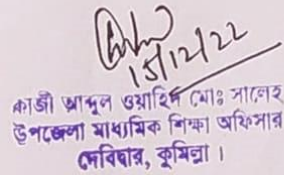 15/12/22
কাজী আব্দুল ওয়াহিদ মোঃ সালেহ
উপজেলা মাধ্যমিক শিক্ষা অফিসার
দেবিদ্বার, কুমিল্লা।